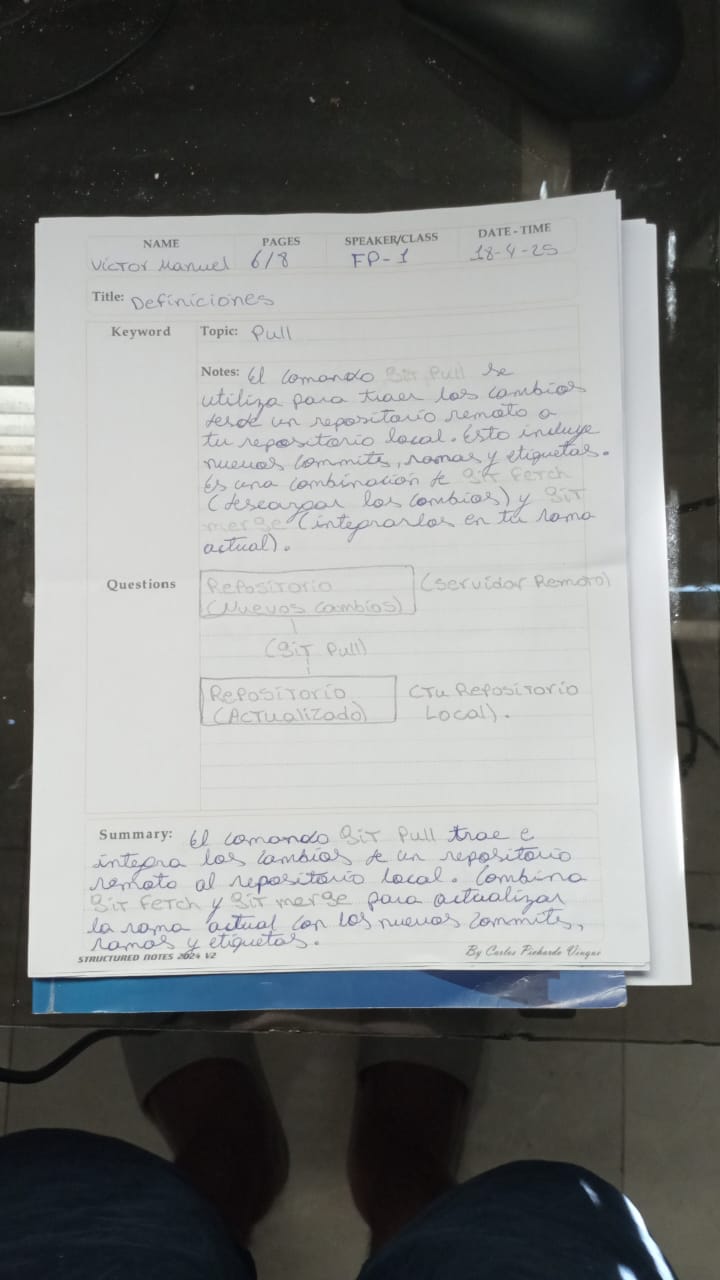 NAME PAGES SPEAKER/CLASS DATE - TIME
Víctor Manuel 6/8 FP-1 18-4-25
Title: Definiciones
Keyword Topic: Pull
Notes: El comando Git Pull se
utiliza para traer los cambios
desde un repositorio remoto a
tu repositorio local. Esto incluye
nuevos commits, ramas y etiquetas.
Es una combinación de Git Fetch
(descargar los cambios) y Git
merge (integrarlos en tu rama
actual).
Questions Repositorio (Servidor Remoto)
(Nuevos Cambios)
(Git Pull)
Repositorio (Tu Repositorio
(Actualizado) Local).
Summary: El comando Git Pull trae e
integra los cambios de un repositorio
remoto al repositorio local. Combina
Git Fetch y Git merge para actualizar
la rama actual con los nuevos commits,
ramas y etiquetas.
STRUCTURED NOTES 2024 V2 By Carlos Pichardo Viuque